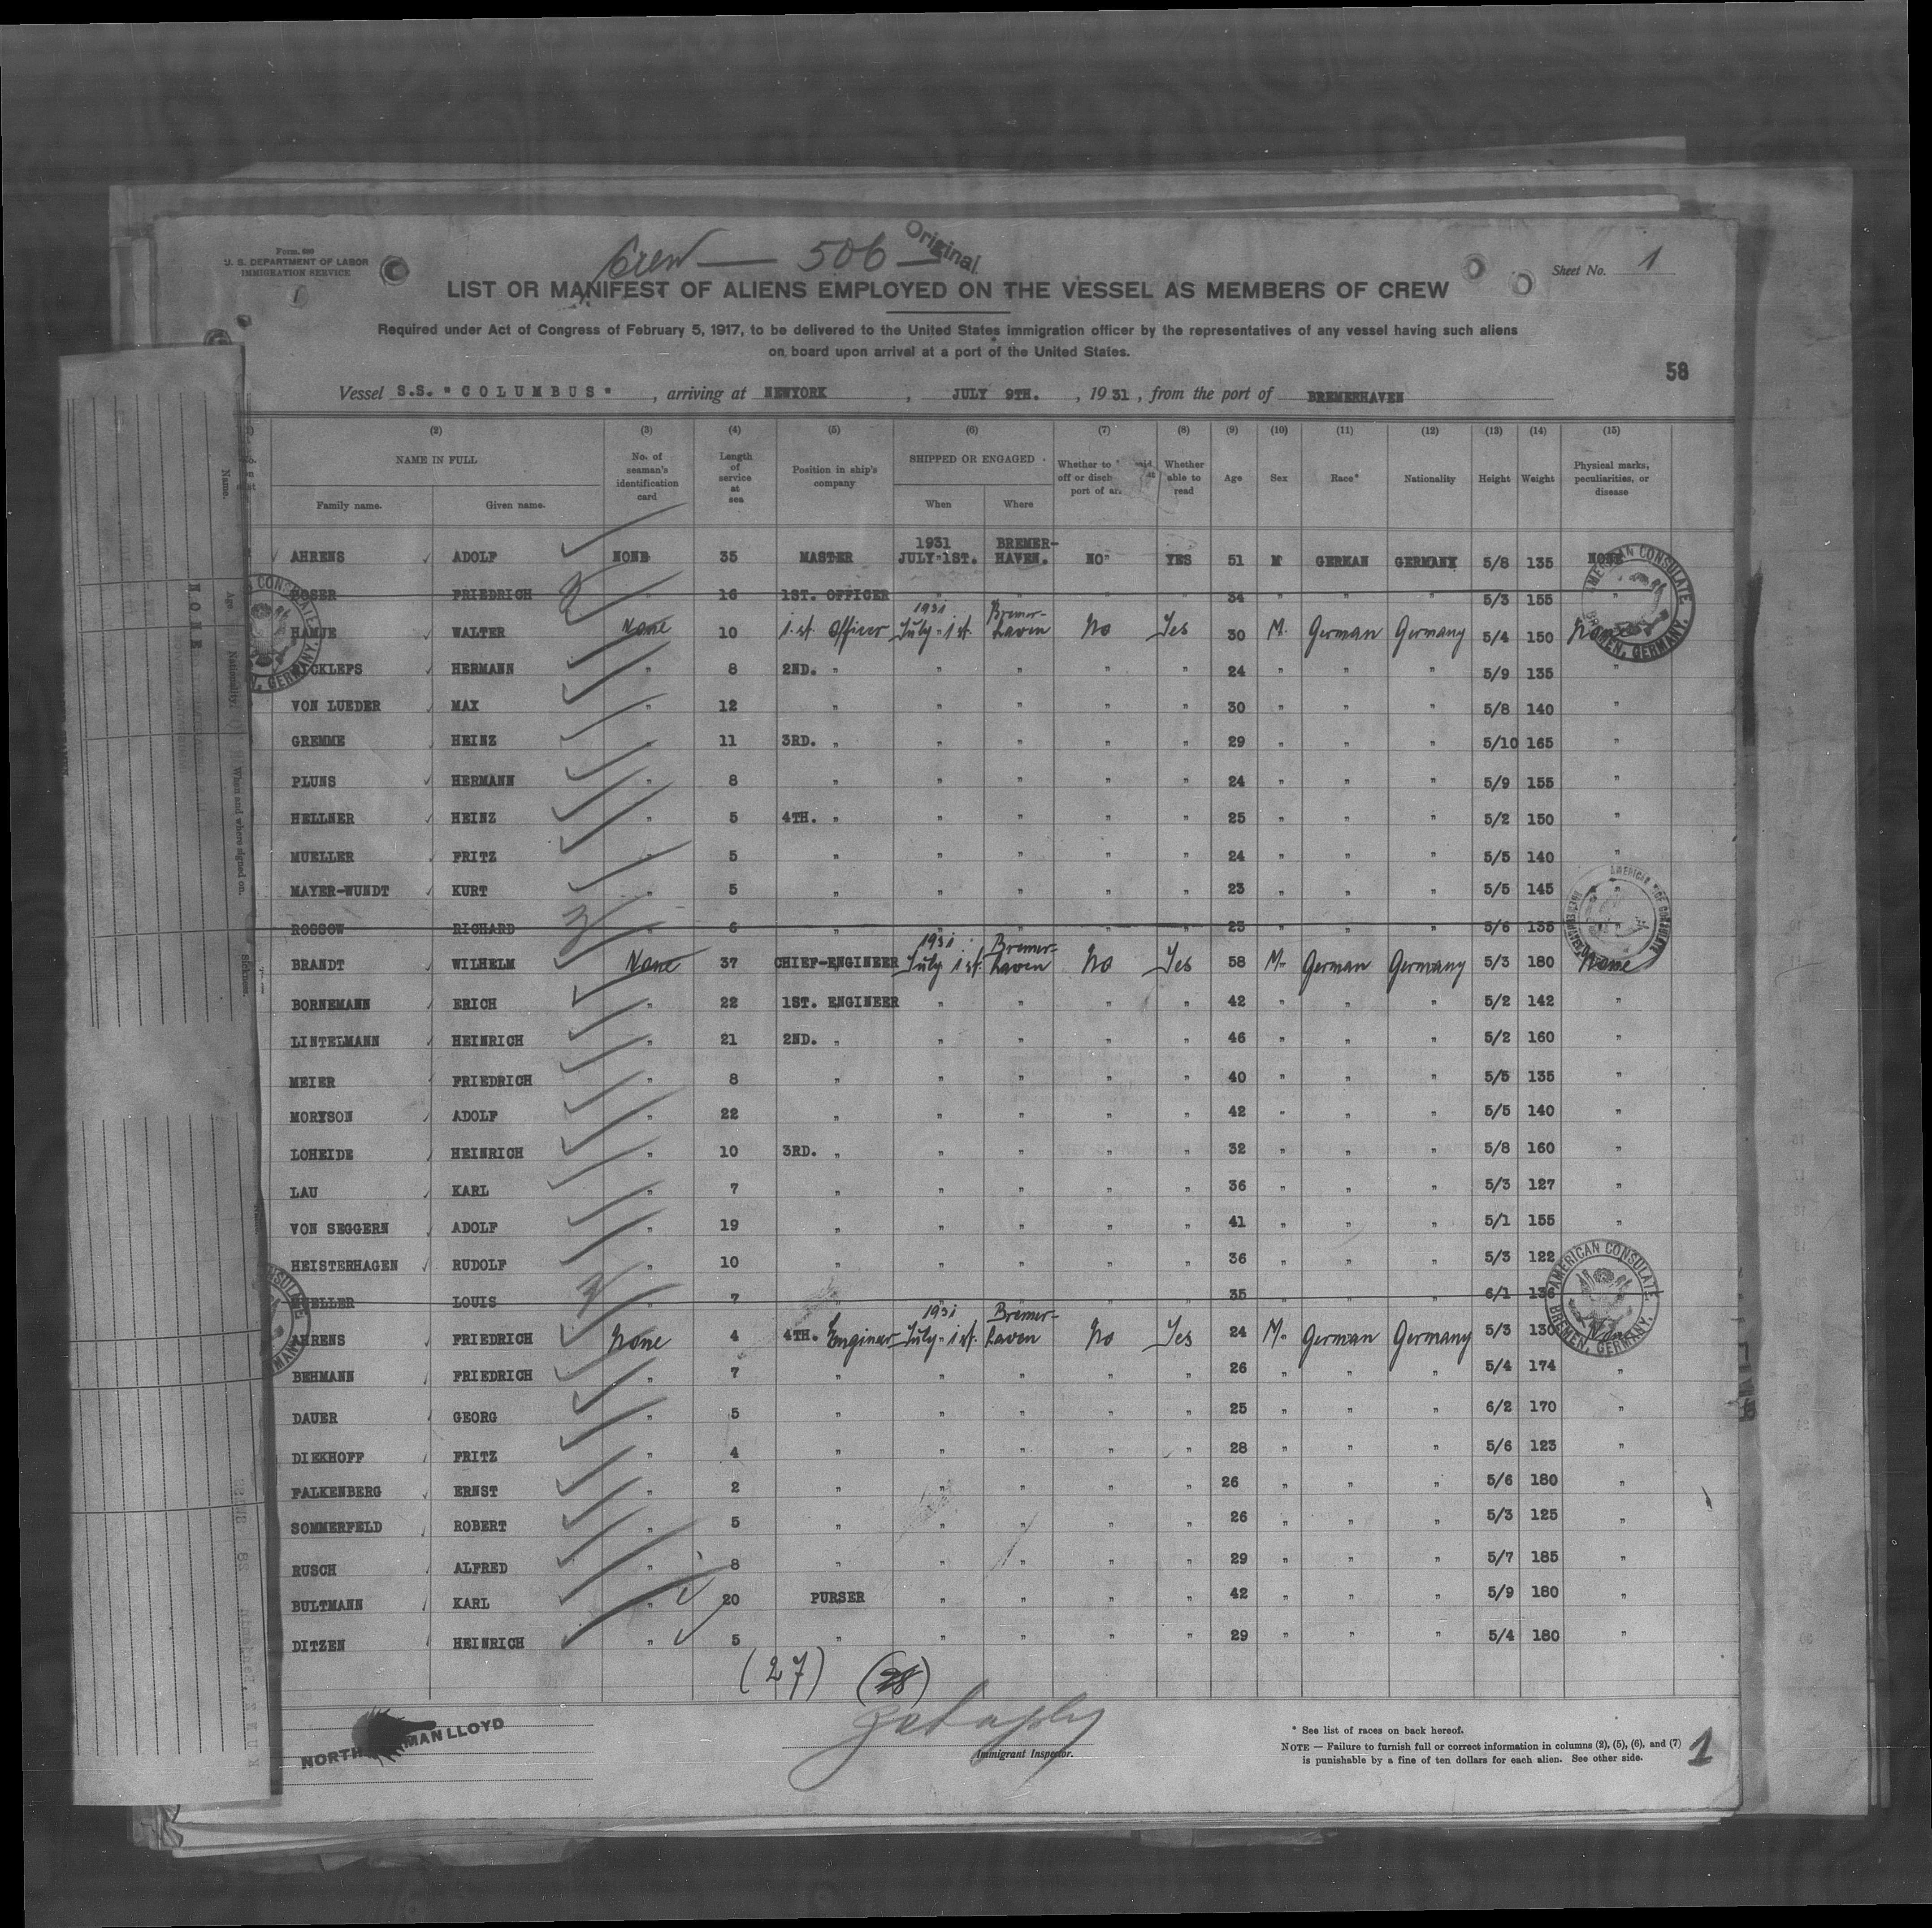 Form. 680
U. S. DEPARTMENT OF LABOR
IMMIGRATION SERVICE
Crew — 506 — Original
Sheet No. 1
LIST OR MANIFEST OF ALIENS EMPLOYED ON THE VESSEL AS MEMBERS OF CREW
Required under Act of Congress of February 5, 1917, to be delivered to the United States immigration officer by the representatives of any vessel having such aliens
on board upon arrival at a port of the United States.
58
Vessel S.S. "COLUMBUS", arriving at NEWYORK, JULY 9TH., 1931, from the port of BREMERHAVEN
(2) (3) (4) (5) (6) (7) (8) (9) (10) (11) (12) (13) (14) (15)
NAME IN FULL
Family name. Given name.
No. of seaman's identification card
Length of service at sea
Position in ship's company
SHIPPED OR ENGAGED
When Where
Whether to off or disch port of
Whether able to read
Age Sex Race* Nationality Height Weight
Physical marks, peculiarities, or disease
AHRENS ADOLF NONE 35 MASTER 1931 JULY-1ST. BREMER-HAVEN. NO" YES 51 M GERMAN GERMANY 5/8 135 NONE
FRIEDRICH " 16 1ST. OFFICER " " " " 34 " " " 5/3 155 "
HAMJE WALTER None 10 1.st. Officer 1931 July-1st. Bremer-haven No Yes 30 M. German Germany 5/4 150 None
RICKLEFS HERMANN " 8 2ND. " " " " " 24 " " " 5/9 135 "
VON LUEDER MAX " 12 " " " " " 30 " " " 5/8 140 "
GREMME HEINZ " 11 3RD. " " " " " 29 " " " 5/10 165 "
PLUNS HERMANN " 8 " " " " " 24 " " " 5/9 155 "
HELLNER HEINZ " 5 4TH. " " " " " 25 " " " 5/2 150 "
MUELLER FRITZ " 5 " " " " " 24 " " " 5/5 140 "
MAYER-WUNDT KURT " 5 " " " " " 23 " " " 5/5 145 "
ROSSOW RICHARD " 6 " " " " " 25 " " " 5/6 135
BRANDT WILHELM None 37 CHIEF-ENGINEER 1931 July 1st. Bremer-haven No Yes 58 M. German Germany 5/3 180 None
BORNEMANN ERICH " 22 1ST. ENGINEER " " " " 42 " " " 5/2 142 "
LINTELMANN HEINRICH " 21 2ND. " " " " " 46 " " " 5/2 160 "
MEIER FRIEDRICH " 8 " " " " " 40 " " " 5/5 135 "
MORYSON ADOLF " 22 " " " " " 42 " " " 5/5 140 "
LOHEIDE HEINRICH " 10 3RD. " " " " " 32 " " " 5/8 160 "
LAU KARL " 7 " " " " " 36 " " " 5/3 127 "
VON SEGGERN ADOLF " 19 " " " " " 41 " " " 5/1 155 "
HEISTERHAGEN RUDOLF " 10 " " " " " 36 " " " 5/3 122
MUELLER LOUIS " 7 " " " " " 35 " " " 6/1 136
AHRENS FRIEDRICH None 4 4TH. Engineer 1931 July-1st. Bremer-haven No Yes 24 M. German Germany 5/3 130 None
BEHMANN FRIEDRICH " 7 " " " " " 26 " " " 5/4 174 "
DAUER GEORG " 5 " " " " " 25 " " " 6/2 170 "
DIEKHOFF FRITZ " 4 " " " " " 28 " " " 5/6 123 "
FALKENBERG ERNST " 2 " " " " " 26 " " " 5/6 180 "
SOMMERFELD ROBERT " 5 " " " " " 26 " " " 5/3 125 "
RUSCH ALFRED " 8 " " " " " 29 " " " 5/7 185 "
BULTMANN KARL " 20 PURSER " " " " 42 " " " 5/9 180 "
DITZEN HEINRICH " 5 " " " " " 29 " " " 5/4 180 "
(27) (28)
NORTH MAN LLOYD
Immigrant Inspector.
* See list of races on back hereof.
NOTE — Failure to furnish full or correct information in columns (2), (5), (6), and (7)
is punishable by a fine of ten dollars for each alien. See other side.
1
AMERICAN CONSULATE
BREMEN, GERMANY.
AMERICAN CONSULATE.
BREMEN, GERMANY.
Name.
Age
Nationality.
When and where signed on.
Sickness.
NONE